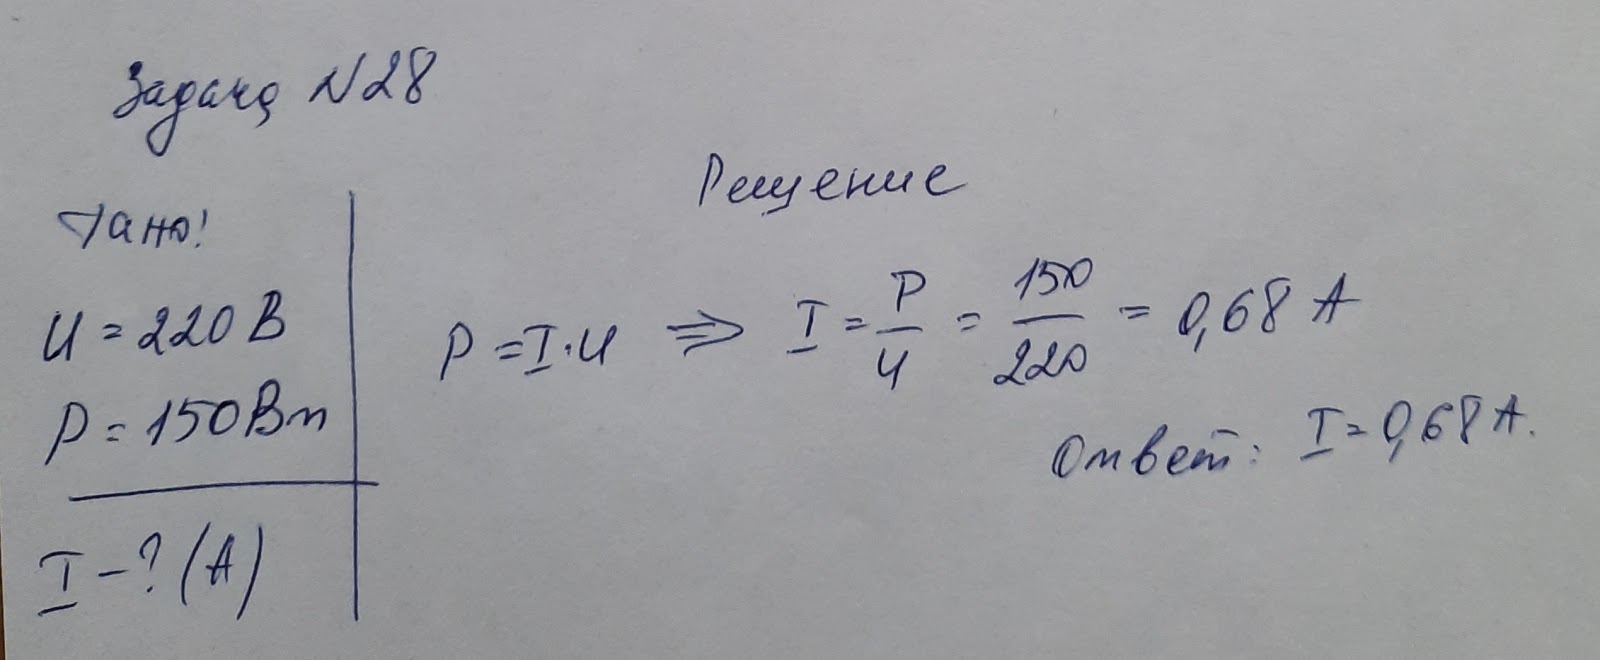 Задача N28
Дано!
U = 220 В
P = 150 Вт
I - ? (А)
Рещение
P = I · U ⇒ I = P/U = 150/220 = 0,68 А
Ответ: I = 0,68 А.